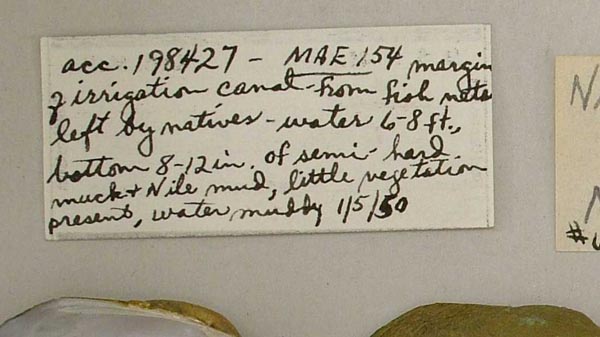 acc. 198427 - MAE 154 margin
of irrigation canal - from fish nets
left by natives - water 6-8 ft.,
bottom 8-12 in. of semi-hard
muck & Nile mud, little vegetation
present, water muddy 1/5/50
N
#